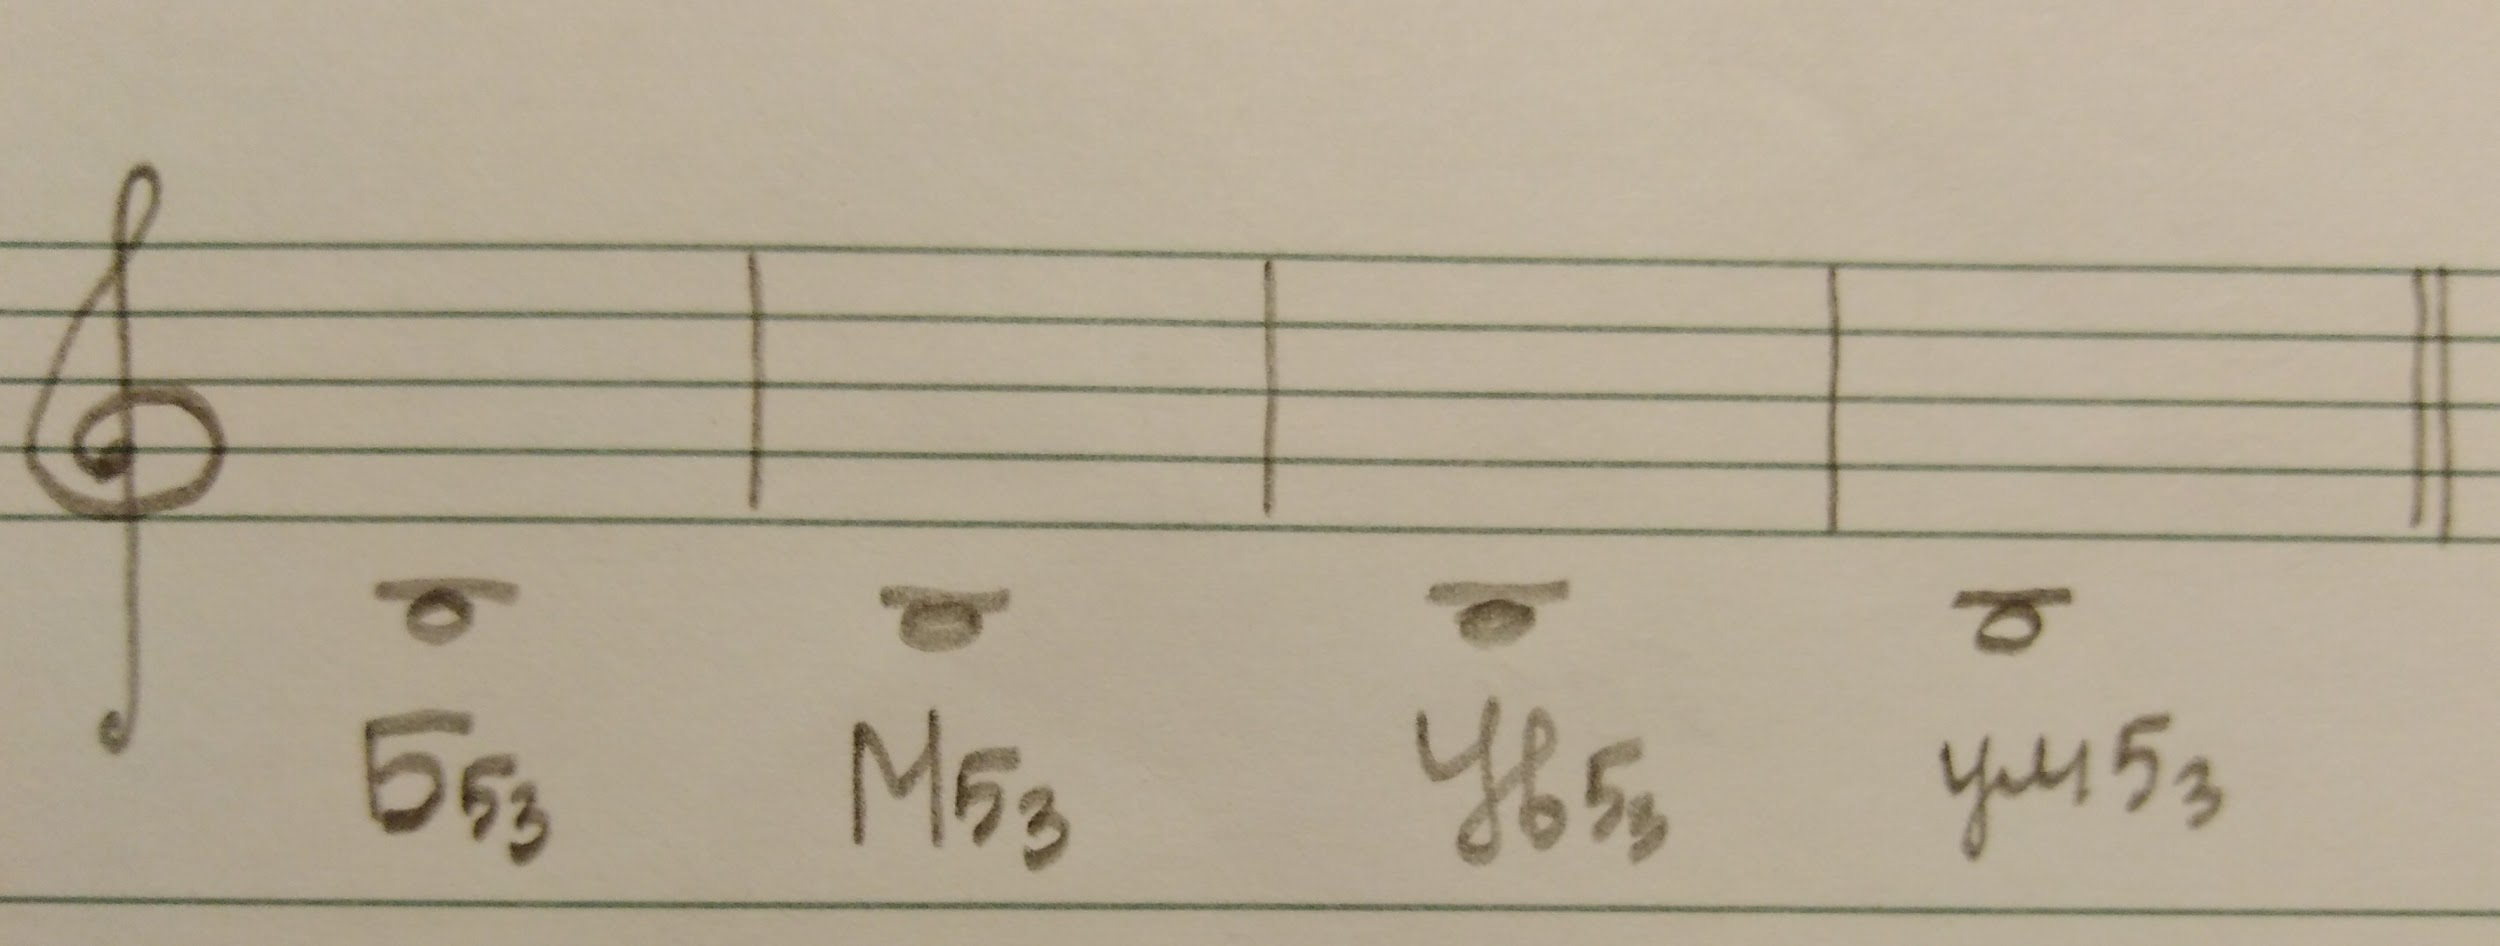 Б53 М53 Ув53 ум53